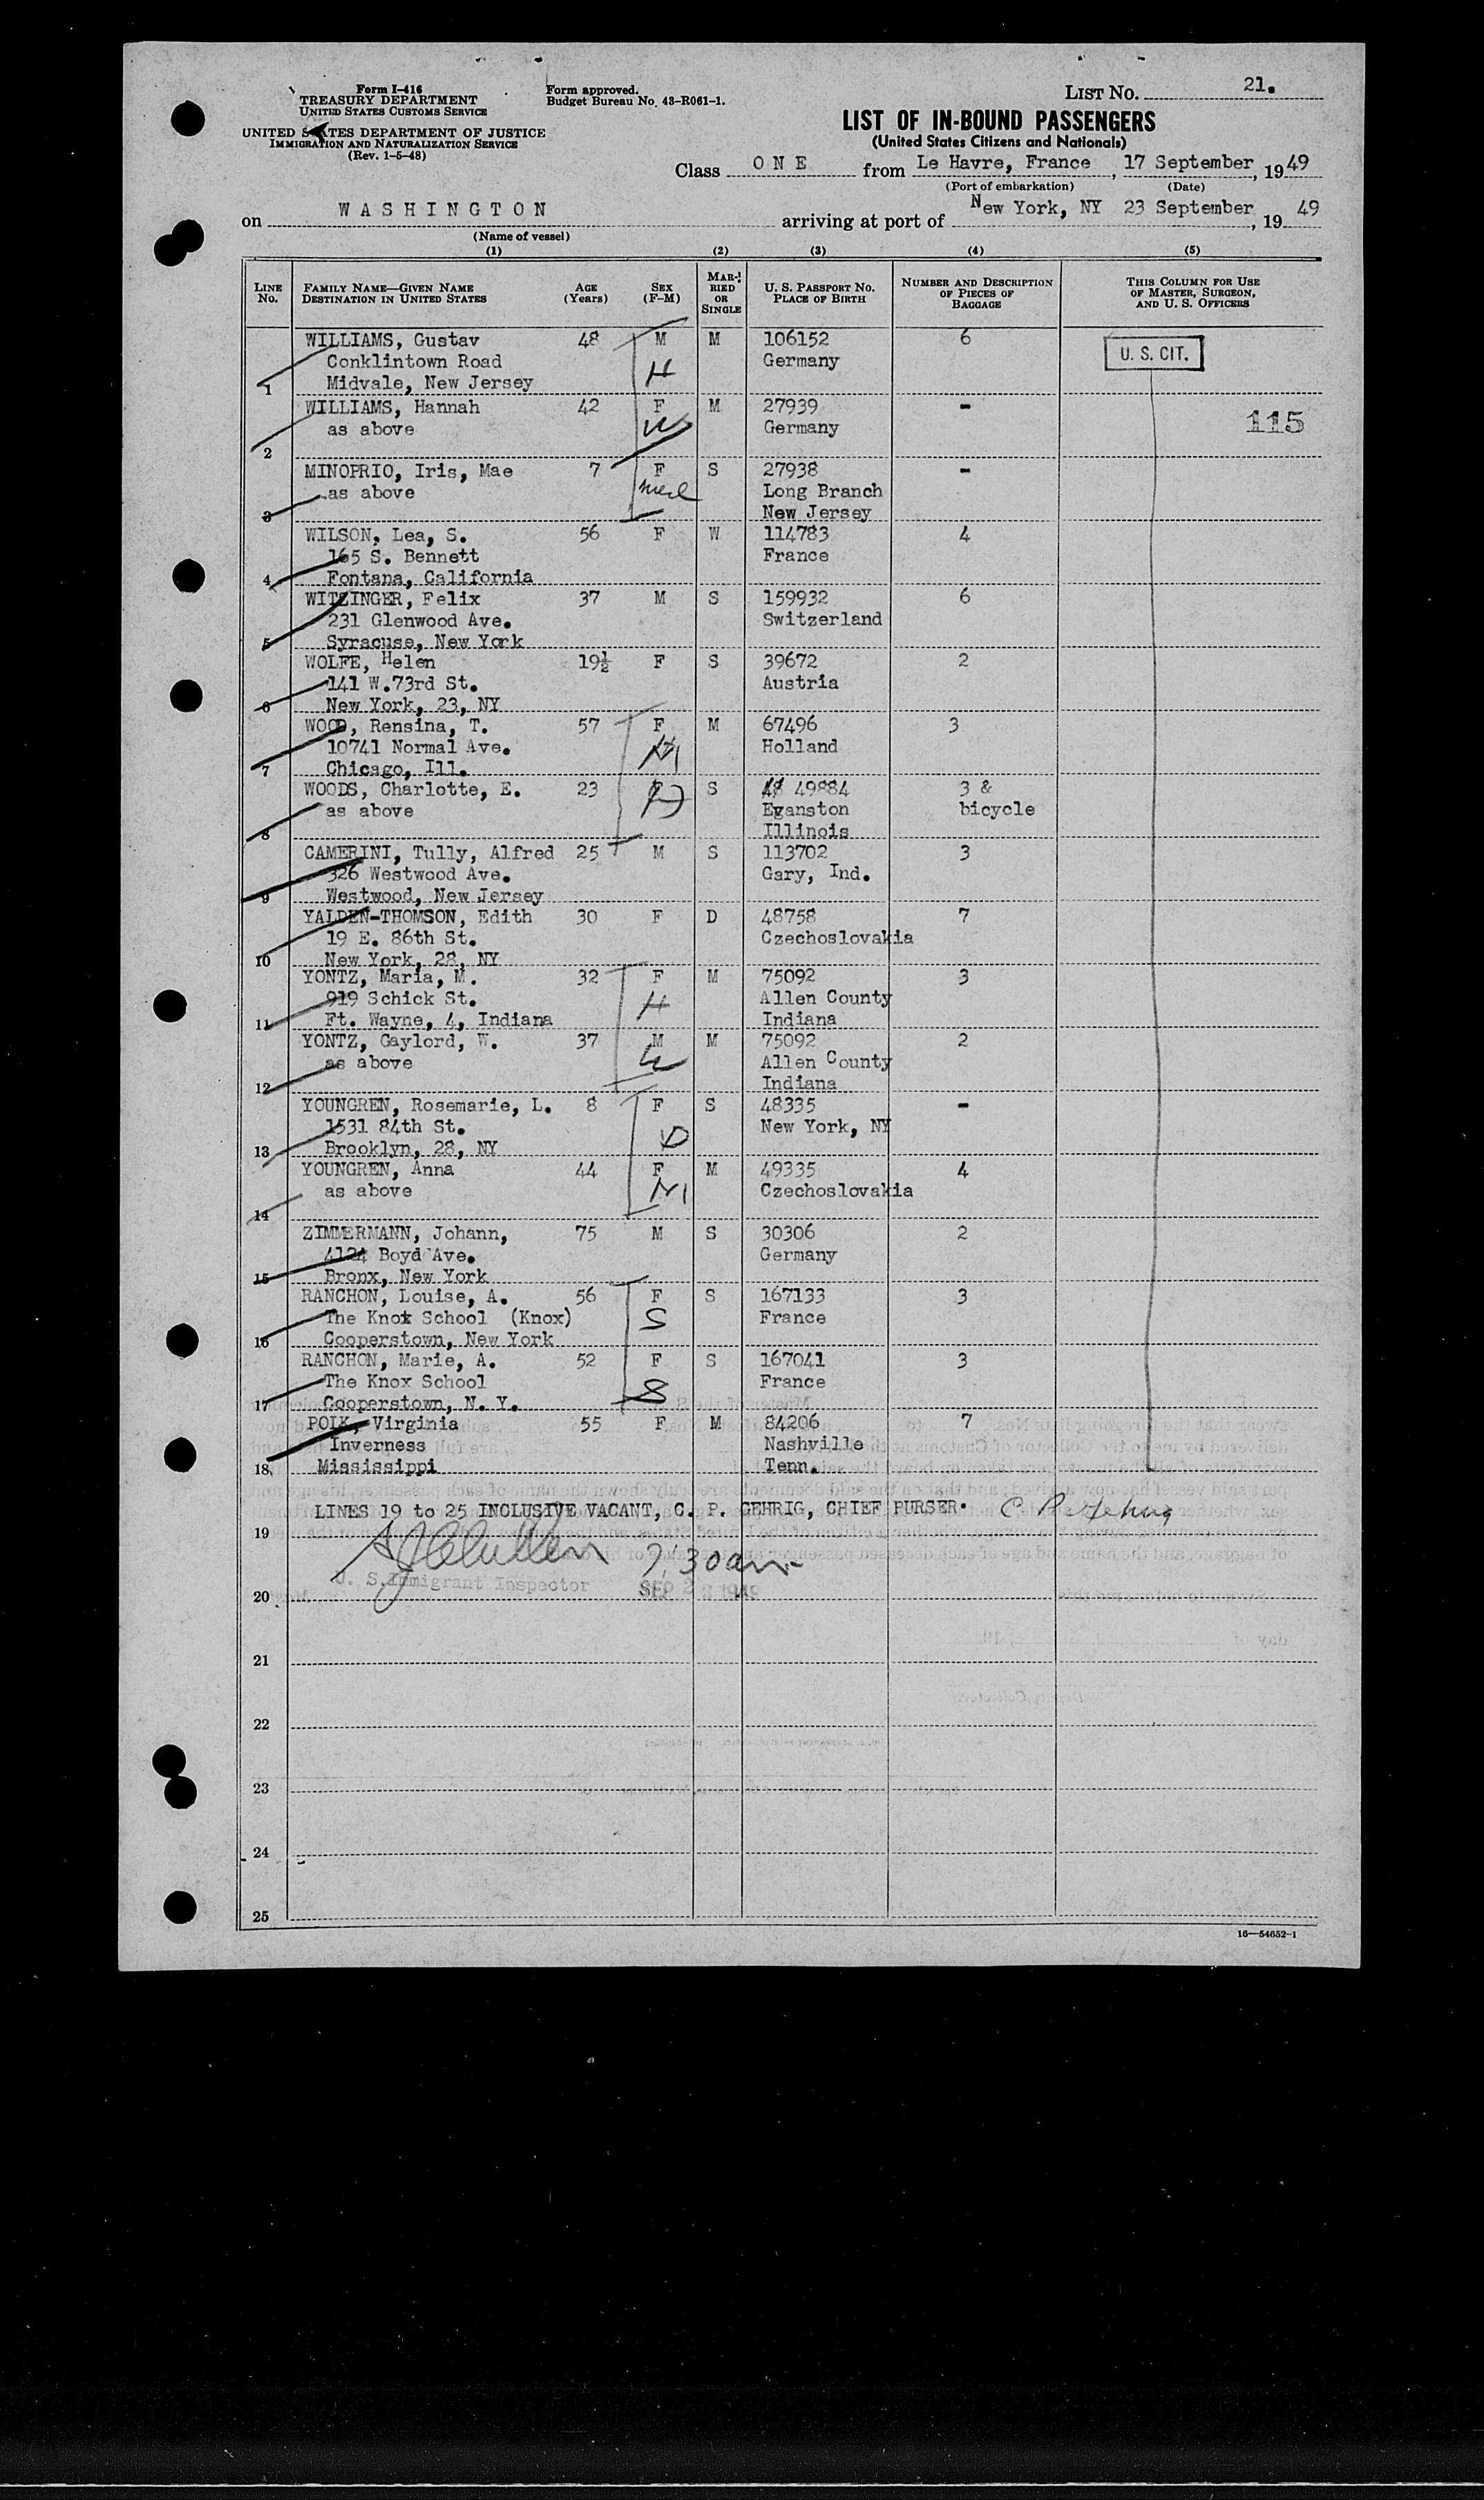 Form I-416
TREASURY DEPARTMENT
UNITED STATES CUSTOMS SERVICE
UNITED STATES DEPARTMENT OF JUSTICE
IMMIGRATION AND NATURALIZATION SERVICE
(Rev. 1-5-48)
Form approved.
Budget Bureau No. 43-R061-1.
LIST NO. 21.
LIST OF IN-BOUND PASSENGERS
(United States Citizens and Nationals)
Class ONE from Le Havre, France, 17 September, 1949
(Port of embarkation) (Date)
on WASHINGTON arriving at port of New York, NY 23 September, 1949
(Name of vessel)
(1) (2) (3) (4) (5)
LINE No. FAMILY NAME—GIVEN NAME DESTINATION IN UNITED STATES AGE (Years) SEX (F-M) MARRIED OR SINGLE U. S. PASSPORT NO. PLACE OF BIRTH NUMBER AND DESCRIPTION OF PIECES OF BAGGAGE THIS COLUMN FOR USE OF MASTER, SURGEON, AND U. S. OFFICERS
WILLIAMS, Gustav 48 M M 106152 6
Conklintown Road H Germany U. S. CIT.
1 Midvale, New Jersey
WILLIAMS, Hannah 42 F M 27939 -
as above W Germany 115
2
MINOPRIO, Iris, Mae 7 F S 27938 -
as above Long Branch
3 New Jersey
WILSON, Lea, S. 56 F W 114783 4
165 S. Bennett France
4 Fontana, California
WITZINGER, Felix 37 M S 159932 6
231 Glenwood Ave. Switzerland
5 Syracuse, New York
WOLFE, Helen 19½ F S 39672 2
141 W.73rd St. Austria
6 New York, 23, NY
WOOD, Rensina, T. 57 F M 67496 3
10741 Normal Ave. M Holland
7 Chicago, Ill.
WOODS, Charlotte, E. 23 S 49884 3 &
as above Evanston bicycle
8 Illinois
CAMERINI, Tully, Alfred 25 M S 113702 3
326 Westwood Ave. Gary, Ind.
9 Westwood, New Jersey
YALDEN-THOMSON, Edith 30 F D 48758 7
19 E. 86th St. Czechoslovakia
10 New York, 28, NY
YONTZ, Maria, M. 32 F M 75092 3
919 Schick St. H Allen County
11 Ft. Wayne, 4, Indiana Indiana
YONTZ, Gaylord, W. 37 M M 75092 2
as above W Allen County
12 Indiana
YOUNGREN, Rosemarie, L. 8 F S 48335 -
1531 84th St. D New York, NY
13 Brooklyn, 28, NY
YOUNGREN, Anna 44 F M 49335 4
as above M Czechoslovakia
14
ZIMMERMANN, Johann, 75 M S 30306 2
4124 Boyd Ave. Germany
15 Bronx, New York
RANCHON, Louise, A. 56 F S 167133 3
The Knox School (Knox) S France
16 Cooperstown, New York
RANCHON, Marie, A. 52 F S 167041 3
The Knox School S France
17 Cooperstown, N. Y.
POLK, Virginia 55 F M 84206 7
Inverness Nashville
18 Mississippi Tenn.
LINES 19 to 25 INCLUSIVE VACANT, C. P. GEHRIG, CHIEF PURSER. C P Gehrig
19
7:30 am
U. S. Immigrant Inspector SEP 23 1949
20
21
22
23
24
25
16—54652-1